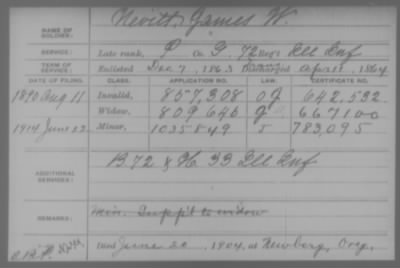 Nevitt James W.
NAME OF SOLDIER:
SERVICE: Late rank, P Co. G, 72 Reg't Ill Inf
TERM OF SERVICE: Enlisted Dec 7, 1863 Discharged April 1, 1864
DATE OF FILING. CLASS. APPLICATION NO. LAW. CERTIFICATE NO.
1890 Aug 11 Invalid, 857,308 O J 642,532
Widow, 809646 G 667100
1914 June 22 Minor, 1035849 J 783,095
ADDITIONAL SERVICES: B 72 & H 33 Ill Inf
REMARKS: Min. Supp'l to widow
Died June 20, 1904, at Newberg, Oreg.